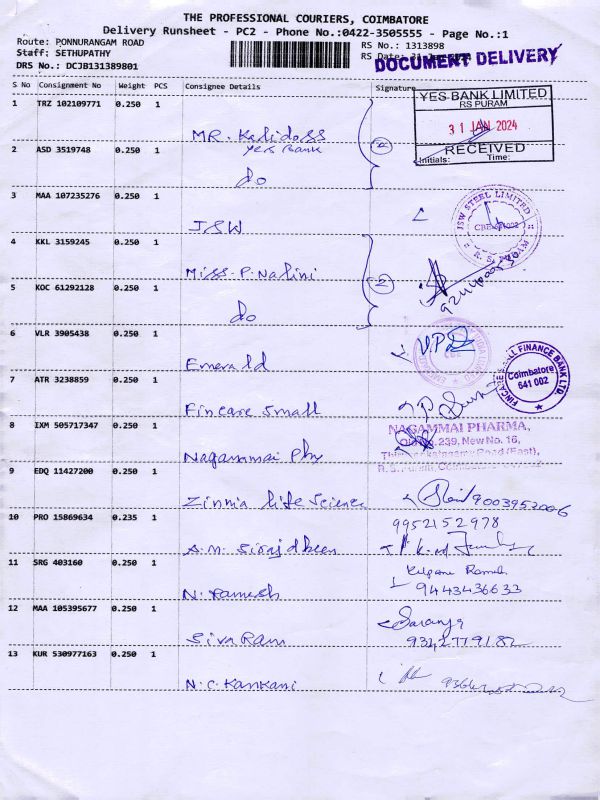 THE PROFESSIONAL COURIERS, COIMBATORE
Delivery Runsheet - PC2 - Phone No.:0422-3505555 - Page No.:1
Route: PONNURANGAM ROAD
Staff: SETHUPATHY
DRS No.: DCJB131389801
RS No.: 1313898
RS Date:
DOCUMENT DELIVERY
S No Consignment No Weight PCS Consignee Details Signature
YES BANK LIMITED
RS PURAM
31 JAN 2024
RECEIVED
Initials: Time:
1 TRZ 102109771 0.250 1
MR. Kalidoss
Yes Bank
2 ASD 3519748 0.250 1
do
3 MAA 107235276 0.250 1
JSW
JSW STEEL LIMITED
R. S. PURAM
4 KKL 3159245 0.250 1
Miss. P. Nalini
2
5 KOC 61292128 0.250 1
do
6 VLR 3905438 0.250 1
Emerald
V.P.
7 ATR 3238859 0.250 1
Fincare Small
FINCARE SMALL FINANCE BANK LTD.
Coimbatore
641 002
8 IXM 505717347 0.250 1
Nagammai Phr
NAGAMMAI PHARMA,
Old No. 239, New No. 16,
Road (East),
9 EDQ 11427200 0.250 1
Zinnia life Science
9003952006
10 PRO 15869634 0.235 1
9952152978
A.M. Sirajdheen
11 SRG 403160 0.250 1
N. Ramesh
Kalpana Ramesh
9443436633
12 MAA 105395677 0.250 1
Siva Ram
Saranya
9342779182
13 KUR 530977163 0.250 1
N.C. Kankani